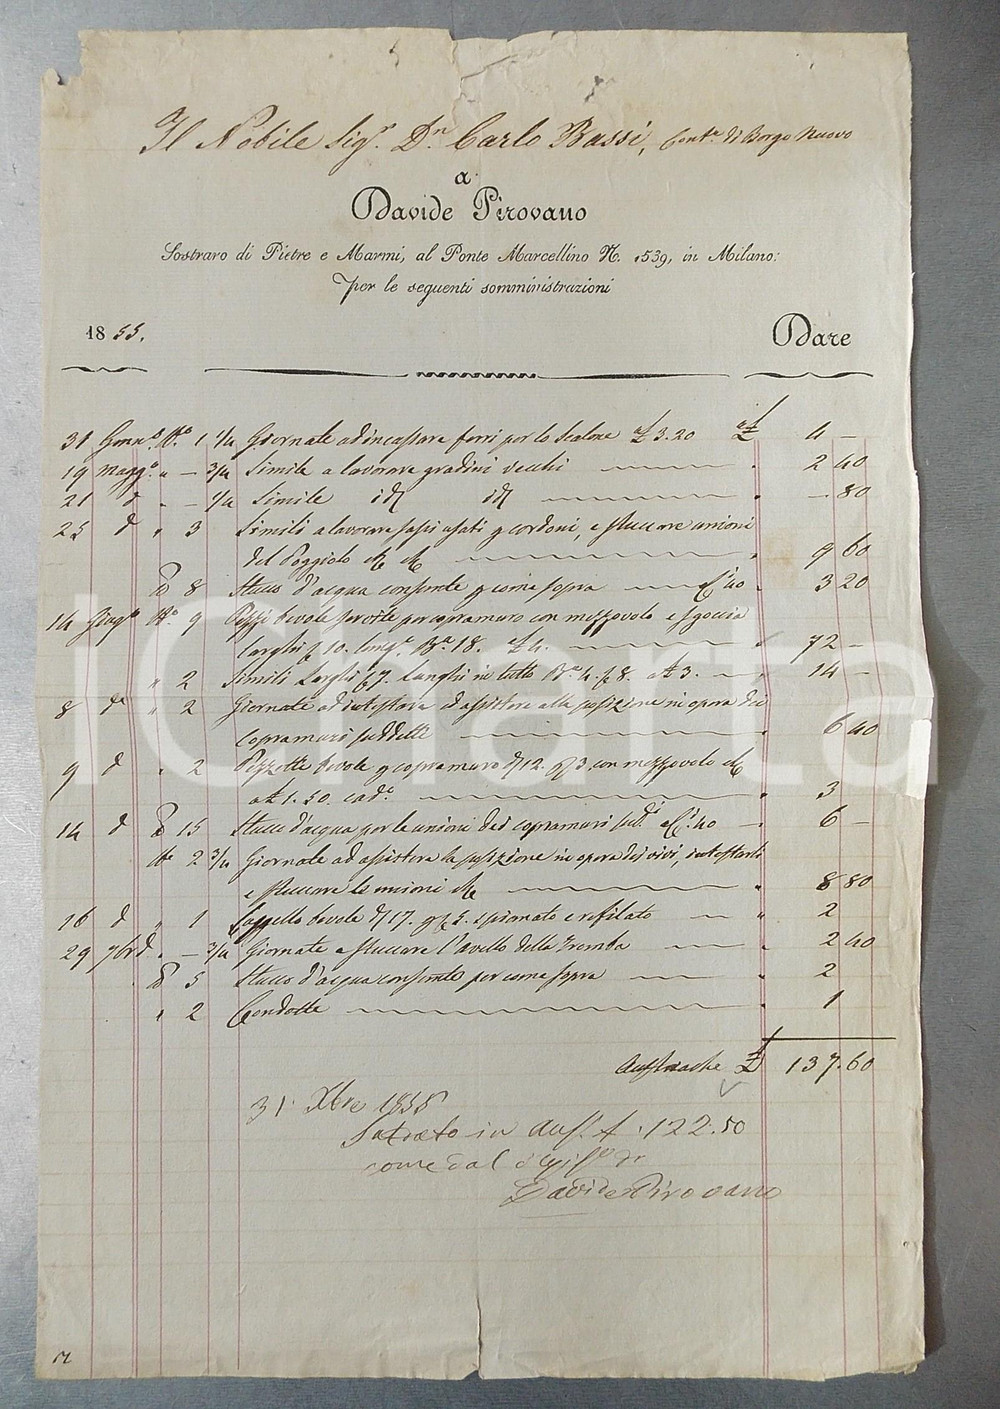 Il Nobile Sig.r D.n Carlo Bassi, Cont.a di Borgo Nuovo
a
Davide Pirovano
Sostraro di Pietre e Marmi, al Ponte Marcellino N. 1539, in Milano:
per le seguenti somministrazioni
1855. Dare
31 Genn.o N.o 1 1/4 Giornate ad incassare ferri per lo Scalone al 3.20 £ 4 —
19 Magg.o " — 3/4 Simile a lavorare gradini vecchi " 2 40
21 d " — 1/4 Simile id id " — 80
25 d " 3 Simili a lavorare sassi usati p cordoni, e stuccare unioni
del Poggiolo " 9 60
8 Stucco d'acqua consente p come sopra 40 " 3 20
14 Giug.o N.o 9 Pezzi bevole per copramuro con mezzovolo e sgoccia
larghi 10. lung.e B.a 18. £ 4. " 72 —
" 2 Simili larghi 7. lunghi in tutto B.a 4. 8. a £ 3. " 14 —
8 d " 2 Giornate ad intestare ed assistere alla posizione in opera dei
copramuri suddetti " 6 40
9 d " 2 Pezzotte bevole p copramuro 12. 3 con mezzovolo
a £ 1.50. cad.o " 3
14 d 15 Stucco d'acqua per le unioni dei copramuri sud.i 40 " 6 —
N.o 2 3/4 Giornate ad assistere la posizione in opera dei vivi, intestarli
e stuccare le unioni " 8 80
16 d " 1 Cappello bevole 17. 5. spianato e rifilato " 2
29 9bre " — 3/4 Giornate a stuccare l'avello della Tromba " 2 40
5 Stucco d'acqua consente per come sopra " 2
" 2 Condotte " 1
Austriache £ 137.60
31 Xbre 1858
Saldato in Aus. £ 122.50
come dal
Davide Pirovano
iCharta